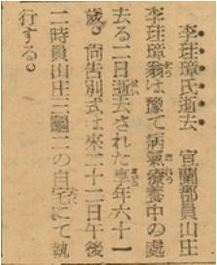 李珪璋氏逝去　宜蘭郡員山庄
李珪璋翁は豫て病氣療養中の處
去る二日逝去された享年六十一
歲。尙告別式は來二十二日午後
二時員山庄三鬮二の自宅にて執
行する。